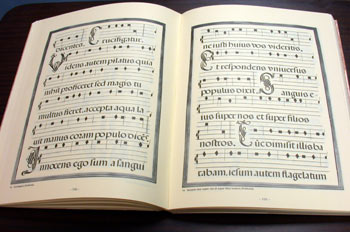 dicentes. Crucifigatur.
Videns autem pilatus quia
nihil proficeret sed magis tu
multus fieret, accepta aqua la
vit manus coram populo dicēs
Innocens ego sum a sangui
ne iusti huius vos videritis.
Et respondens universus
populus dixit. Sanguis e
ius super nos et super filios
nostros. Tūc dimisit illis ba
rabam, iesum autem flagelatum